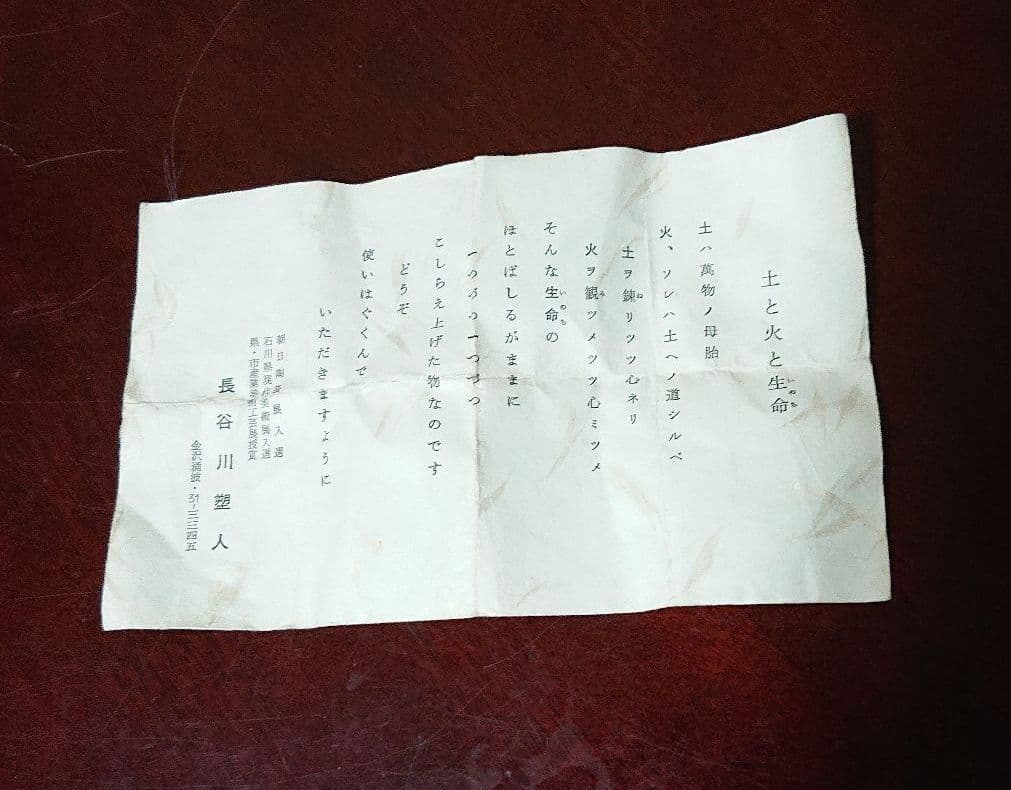 土と火と生命
いのち
土ハ萬物ノ母胎
火、ソレハ土ヘノ道シルベ
土ヲ錬リツツ心ネリ
ね
火ヲ観ツメツツ心ミツメ
み
そんな生命の
いのち
ほとばしるがままに
一つ一つづつ
こしらえ上げた物なのです
どうぞ
使いはぐくんで
いただきますように
朝日陶芸展入選
石川県現代美術展入選
県・市産業
工芸展授賞
長谷川塑人
金沢
31-三三四五